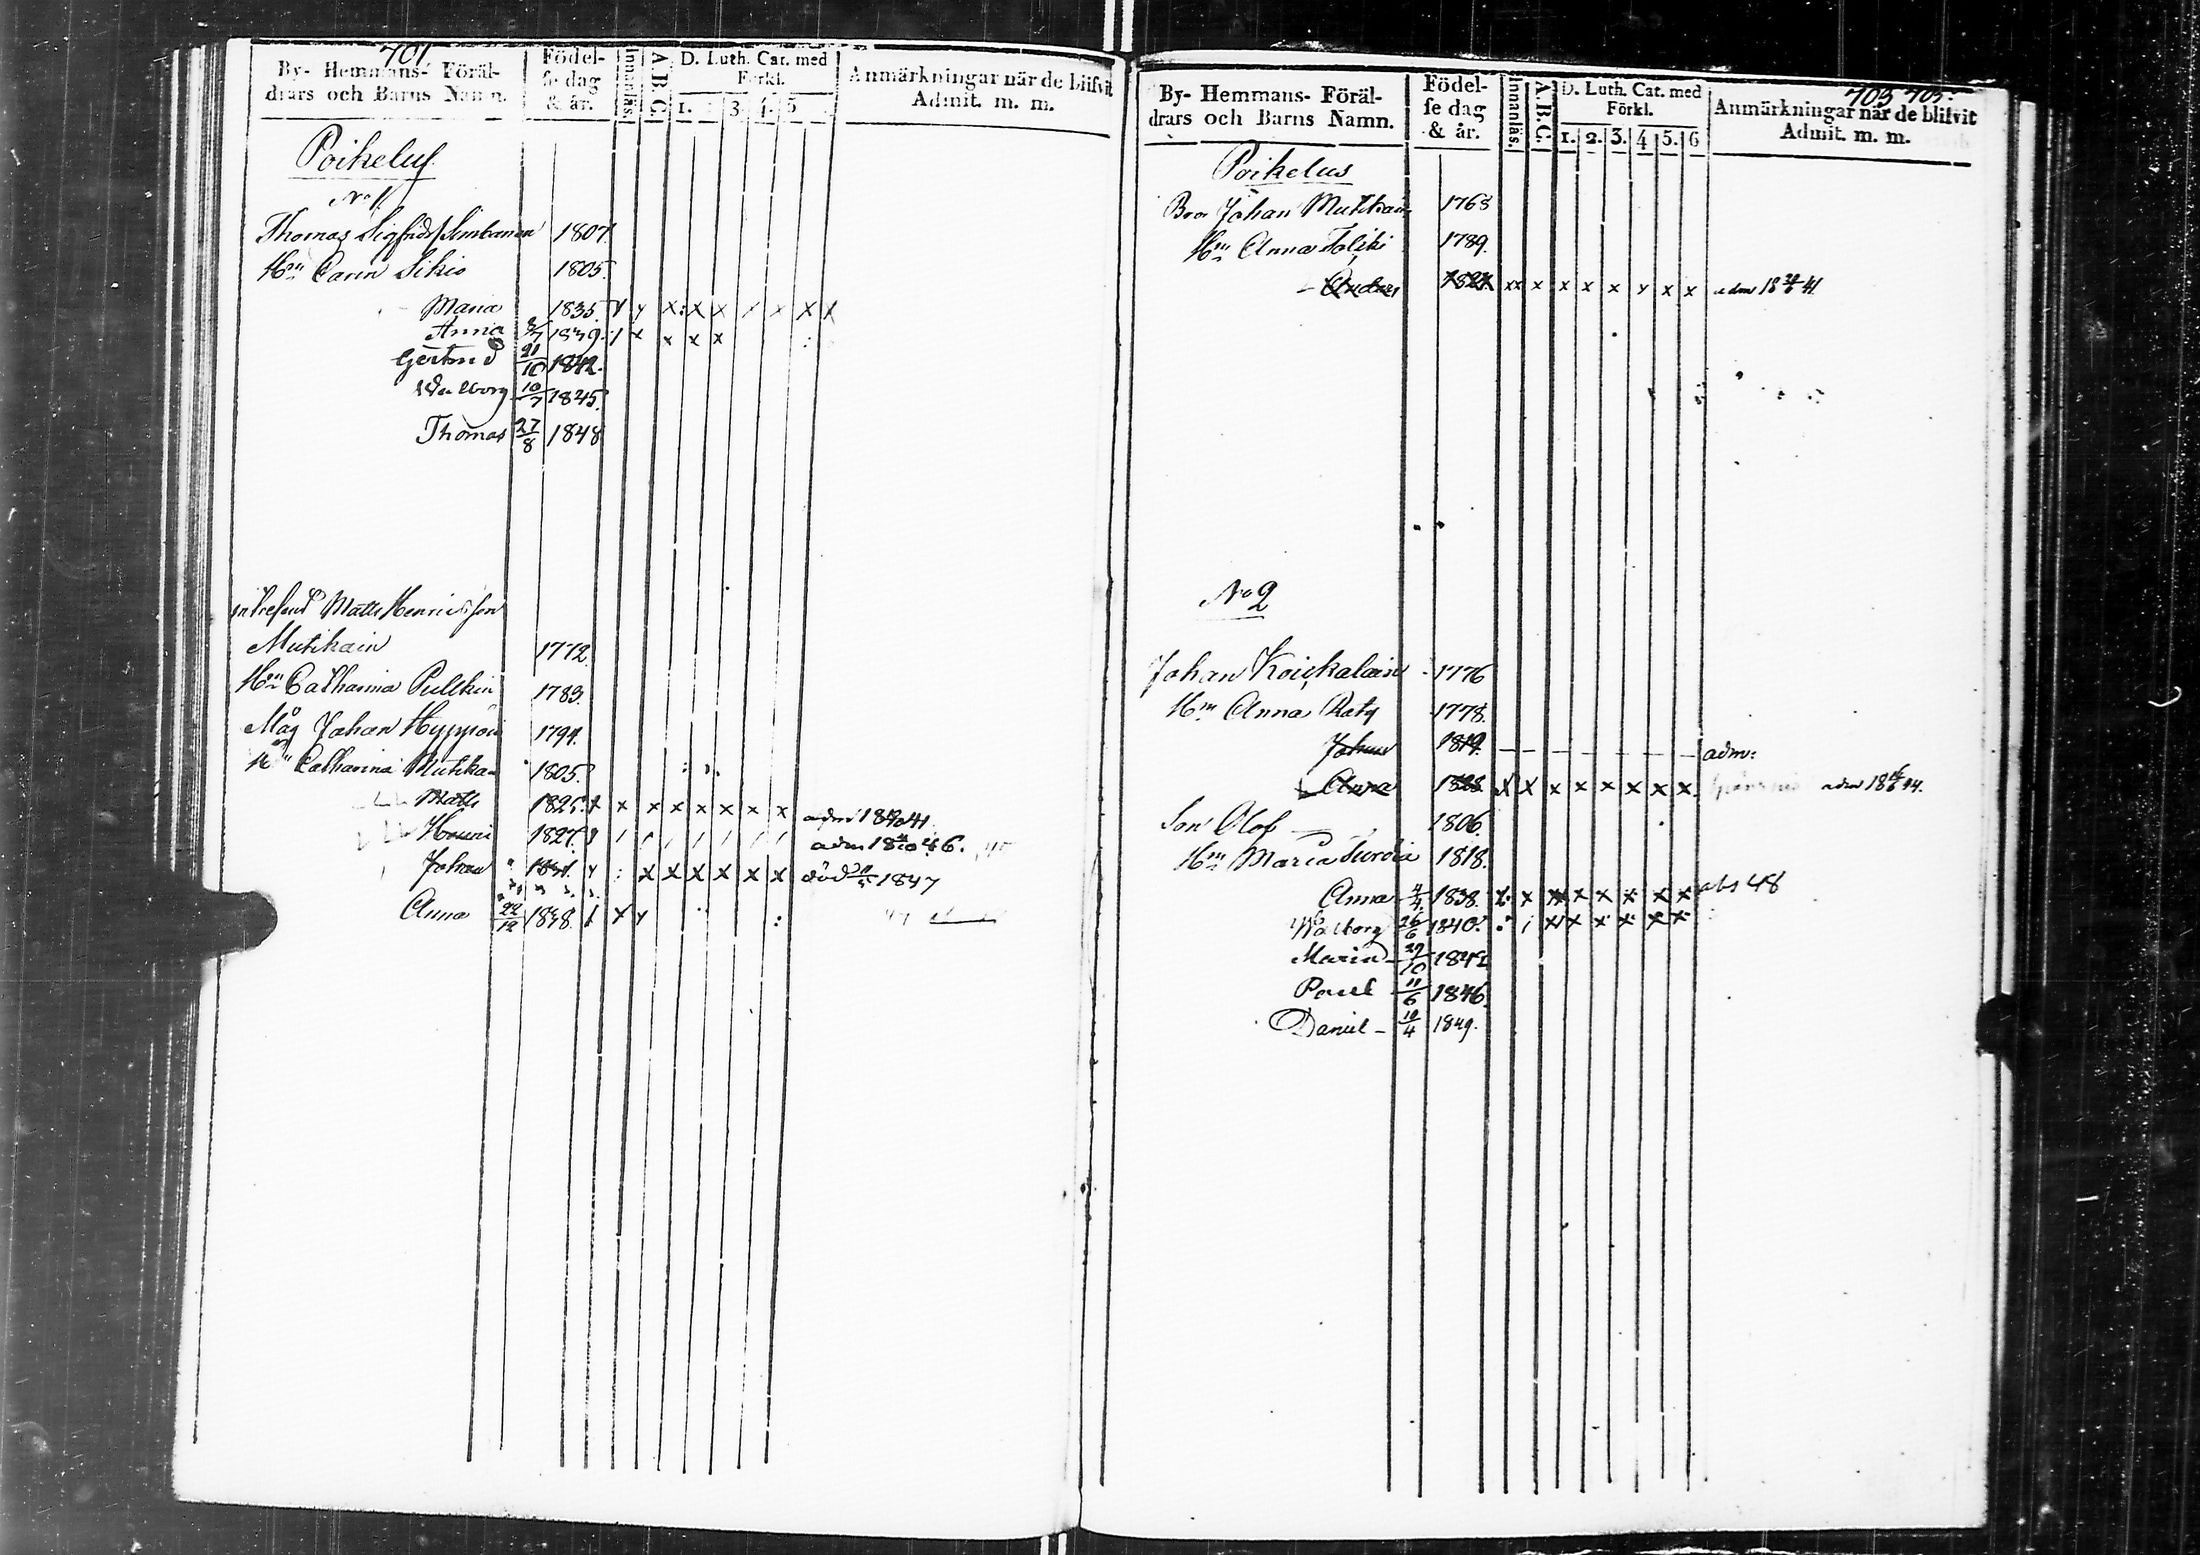 701
By- Hemmans- Föräl-
drars och Barns Namn.
Födel-
se dag
& år.
Innanläs.
A.B.C.
D. Luth. Cat. med
Förkl.
1. 3 4. 5
Anmärkningar når de blifvit
Admit. m. m.
Poikelus
No 1.
Thomas Sigfrids 1807.
Hn Carin Sikio 1805.
Maria 1835. x x x x x x x x x
Anna 1839. x x x x
Gertrud 21/10 1842.
Walborg 10/7 1845.
Thomas 27/8 1848
Matts Henricsson
Mutikain 1772.
Hn Catharina Pulkin 1783.
Måg Johan Hyppöin 1794.
Hn Catharina Mutika 1805.
Matts 1825. x x x x x x x x adm
Henric 1827. / / / / / / / adm 46.
Johan 1831. x x x x x x död 1847
Anna 22/12 1838. x
703 705.
By- Hemmans- Föräl-
drars och Barns Namn.
Födel-
se dag
& år.
Innanläs.
A.B.C.
D. Luth. Cat. med
Förkl.
1. 2. 3. 4 5. 6
Anmärkningar når de blifvit
Admit. m. m.
Poikelus
Bror Johan Mutikain 1763
Hn Anna Tolski 1789.
Anders xx x x x x x x x adm 18 41
No 2
Johan Koickalain 1776
Hn Anna Raty 1778.
Johan 1819. — — — — — — — — adm:
Anna 1823. x x x x x x x x adm 18 44.
Son Olof 1806.
Hn Maria 1818.
Anna 4/4 1838. x x x x x x x x abs 48
Walborg 26/6 1840. x x x x x x
Maria 27/10 1842
Paul 11/6 1846.
Daniel 10/4 1849.